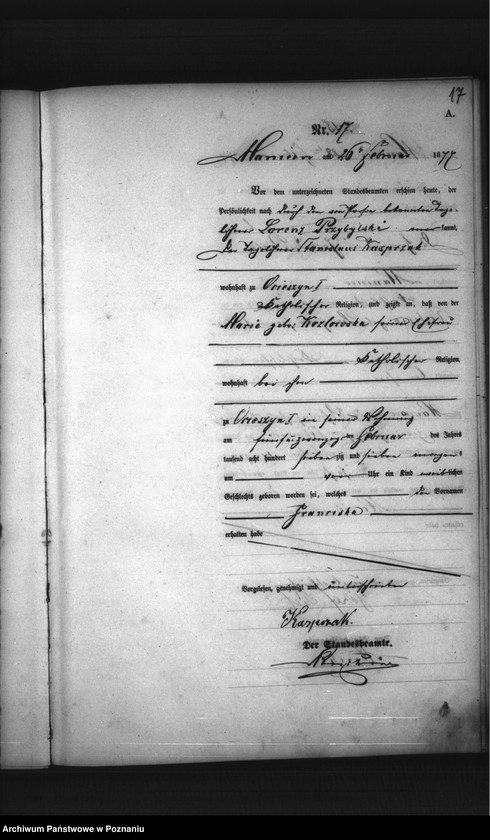 17
A.
Nr. 17.
am 26 ten Februar 1877
Vor dem unterzeichneten Standesbeamten erschien heute, der
Persönlichkeit nach durch den von Person bekannten Tage-
löhner Lorenz Przybylski anerkannt,
der Tagelöhner Stanislaus Kasprzak
wohnhaft zu I
Katholischer Religion, und zeigte an, daß von der
Maria geb. Kozlowska seiner Ehefrau
Katholischer Religion,
wohnhaft bei ihm
zu I in seiner Wohnung
am fünfundzwanzigsten Februar des Jahres
tausend acht hundert siebenzig und sieben morgens
um Uhr ein Kind weiblichen
Geschlechts geboren worden sei, welches den Vornamen
Franciska
erhalten habe
Vorgelesen, genehmigt und unterschrieben
Kasprzak.
Der Standesbeamte.
Archiwum Państwowe w Poznaniu